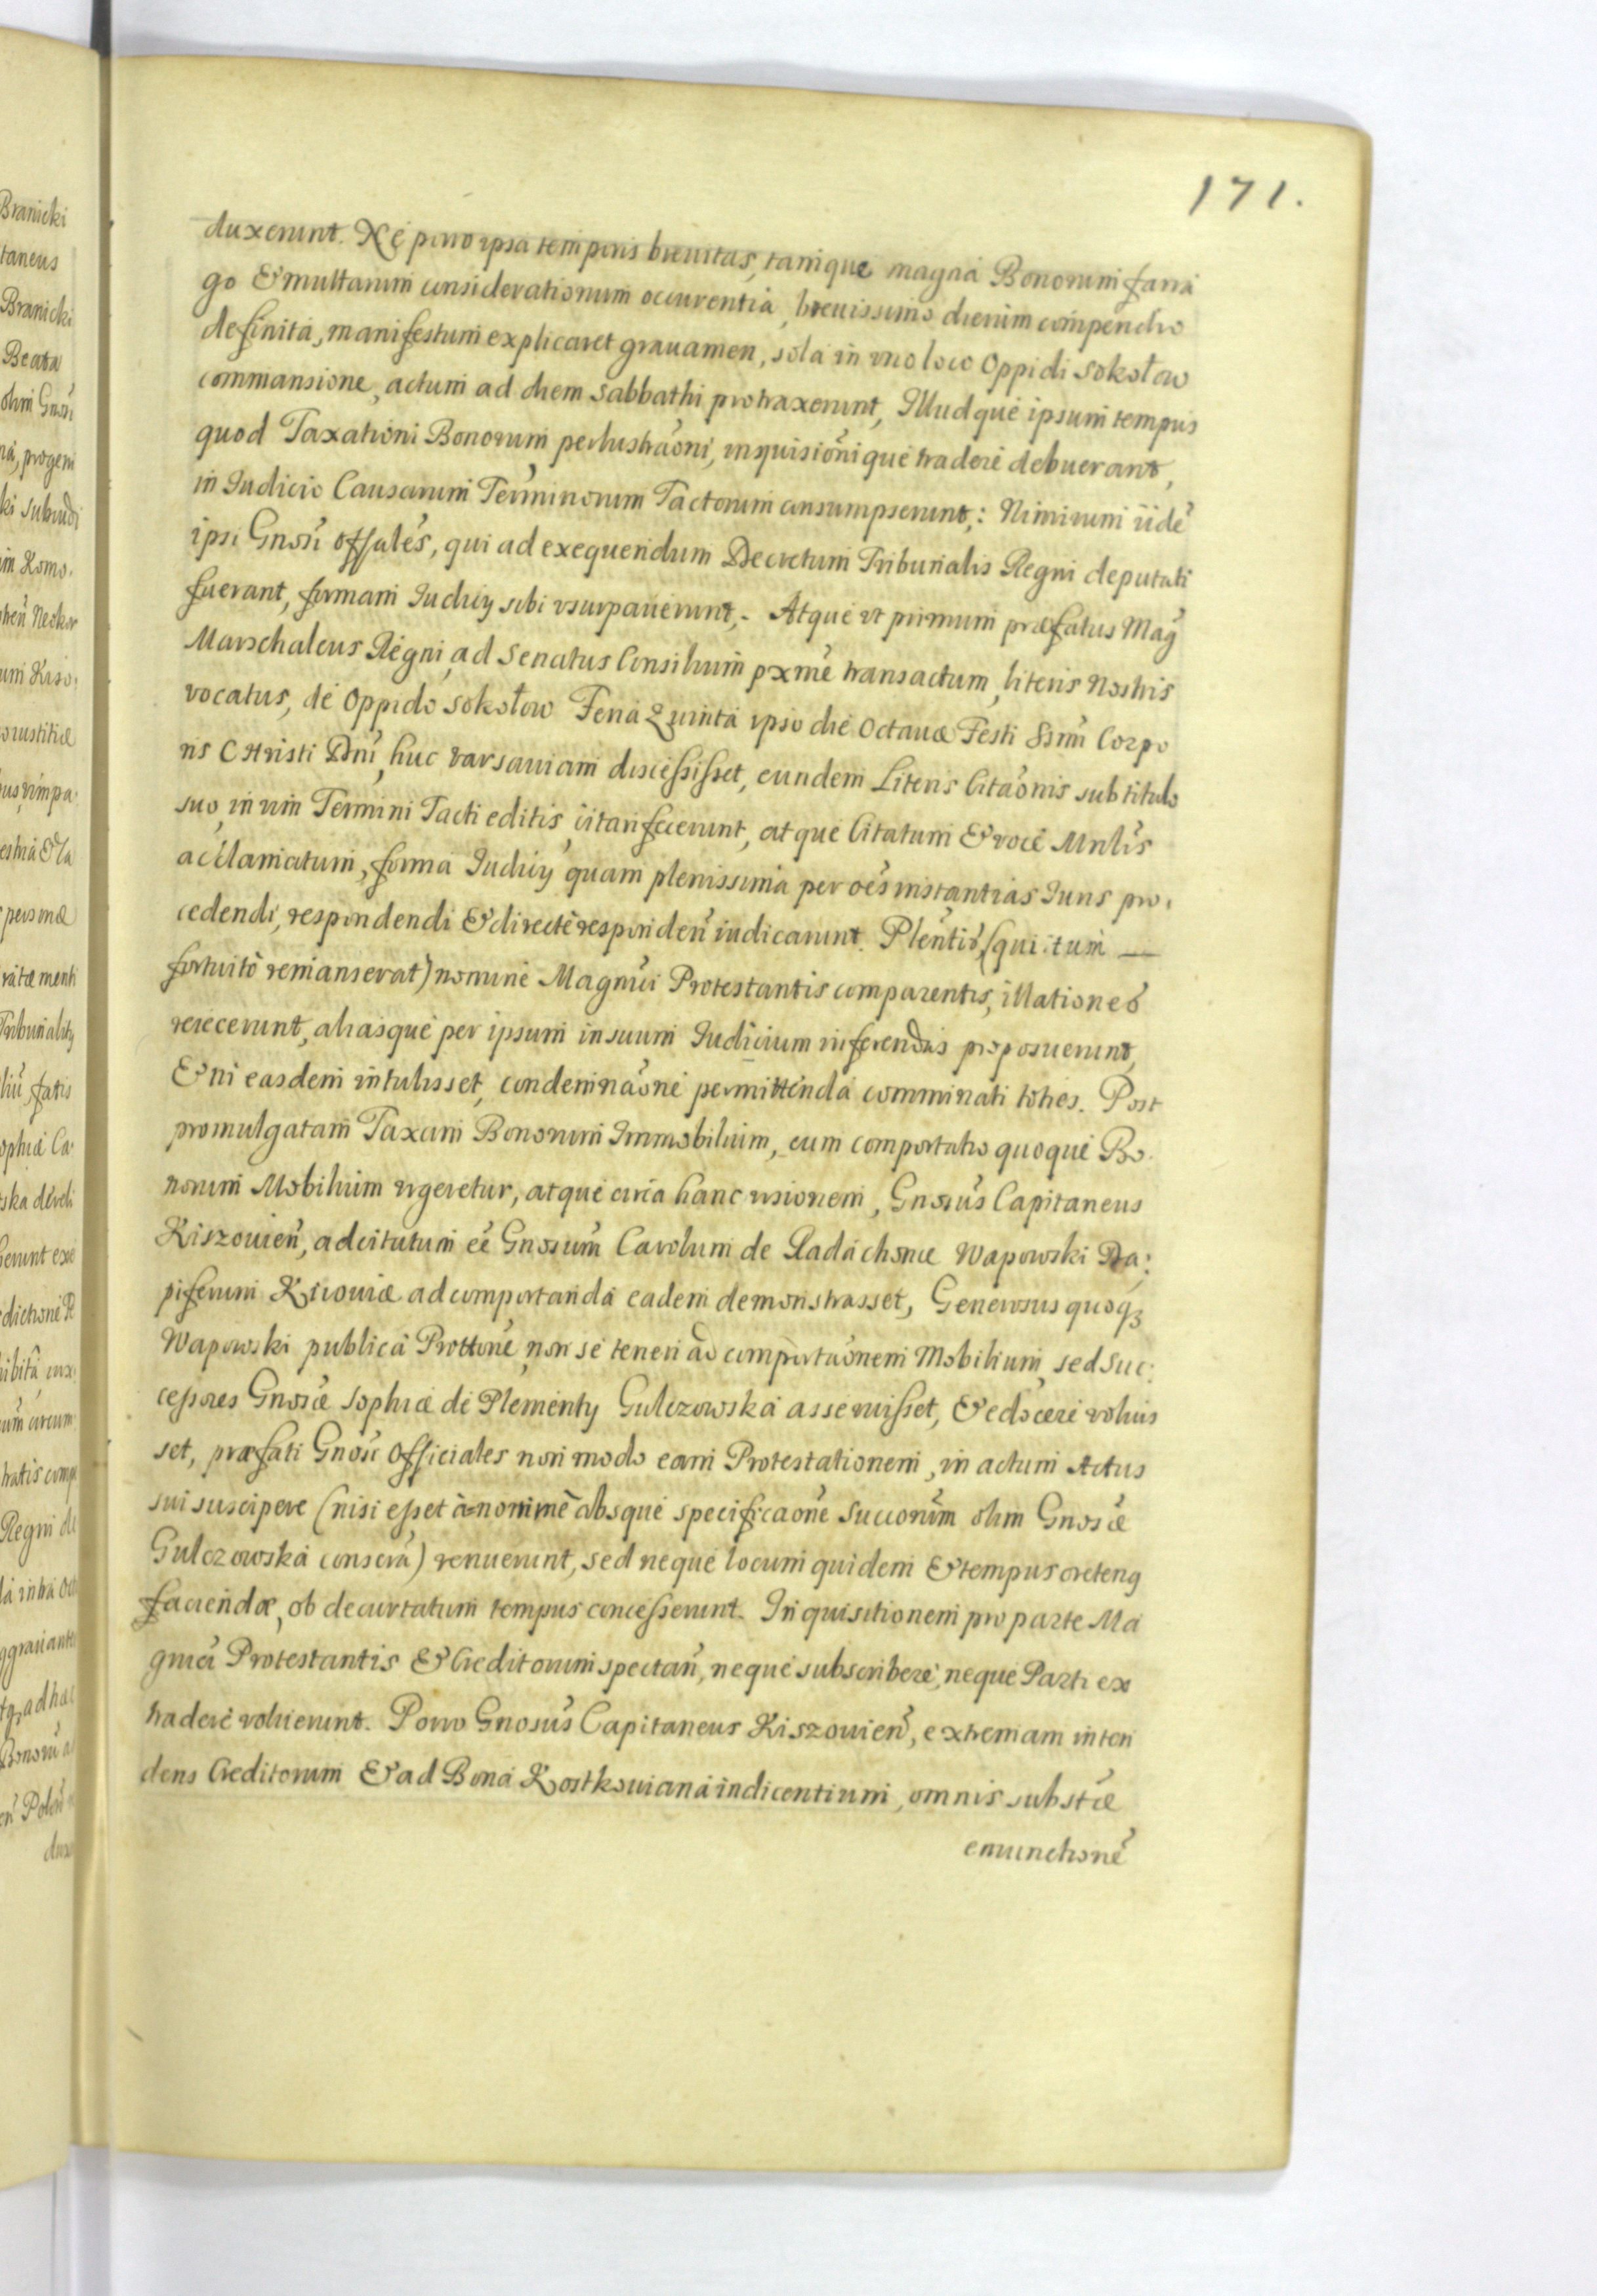 171.
duxerunt. Ne porro ipsa temporis breuitas, tamque magna Bonorum farra
go & multarum considerationum occurentia, breuissimo dierum compendio
definita, manifestum explicaret grauamen, sola in vno loco Oppidi Sokołow
commansione, actum ad diem Sabbathi protraxerunt, Illudque ipsum tempus
quod Taxationi Bonorum perlustrãoni, inquisiõnique tradere debuerant,
in Iudicio Causarum Terminorum Tactorum consumpserunt,: Nimirum iidẽ
ipsi Gnosi offales, qui ad exequendum Decretum Tribunalis Regni deputati
fuerant, formam Iudicij sibi vsurpauerunt,- Atque vt primum præfatus Mag
Marschalcus Regni, ad Senatus Consilium pxme transactum, literis Nostris
vocatus, de Oppido Sokołow Feria Quinta ipso die Octauæ Festi Ssmi Corpo
ris CHristi Dni, huc Varsauiam discessisset, eundem Literis Citãonis sub titulo
suo, in vim Termini Tacti editis, citari fecerunt, atque Citatum & voce Mnlis
acclamatum, forma Iudicij quam plenissima per oẽs instantias Iuris pro,
cedendi, respondendi & directe responden iudicarunt. Plentis, (qui tum —
fortuitò remanserat) nomine Magnci Protestantis comparentis, illationes
reiecerunt, aliasque per ipsum in suum Iudicium inferendas proposuerunt,
& ni easdem intulisset, condemnãone permittenda comminati toties. Post
promulgatam Taxam Bonorum Immobilium, cum comportatio quoque Bo
norum Mobilium vrgeretur, atque circa hanc visionem, Gnosus Capitaneus
Kiszouien, adcitatum eẽ Gnosum Carolum de Radachonce Wapowski Da:
piferum Kiiouiæ ad comportanda eadem demonstrasset, Generosus quoq
Wapowski publica Prottone, non se teneri ad comportãonem Mobilium, sed Suc:
cessores Gnosæ Sophiæ de Plementy Gulczowska asseruisset, & edocere voluis
set, præfati Gnosi Officiales non modo eam Protestationem, in actum Actus
sui suscipere (nisi esset à nomine absque specificãone Succorum olim Gnosæ
Gulczowska) renuerunt, sed neque locum quidem & tempus
faciendæ, ob decurtatum tempus concesserunt. Inquisitionem pro parte Ma
gnci Protestantis & Creditorum spectan, neque subscribere, neque Parti ex
tradere voluerunt. Porro Gnosus Capitaneus Kiszouien, extremam inten
dens Creditorum & ad Bona Kostkouiana indicentium, omnis substæ
emunctione